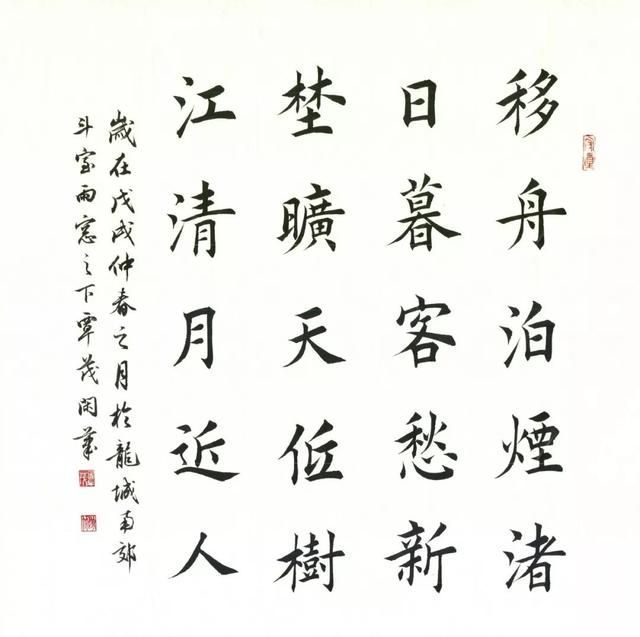 移舟泊煙渚
日暮客愁新
埜曠天低樹
江清月近人
歲在戊戌仲春之月於龍城南郊
斗室雨窓之下覃茂閑筆